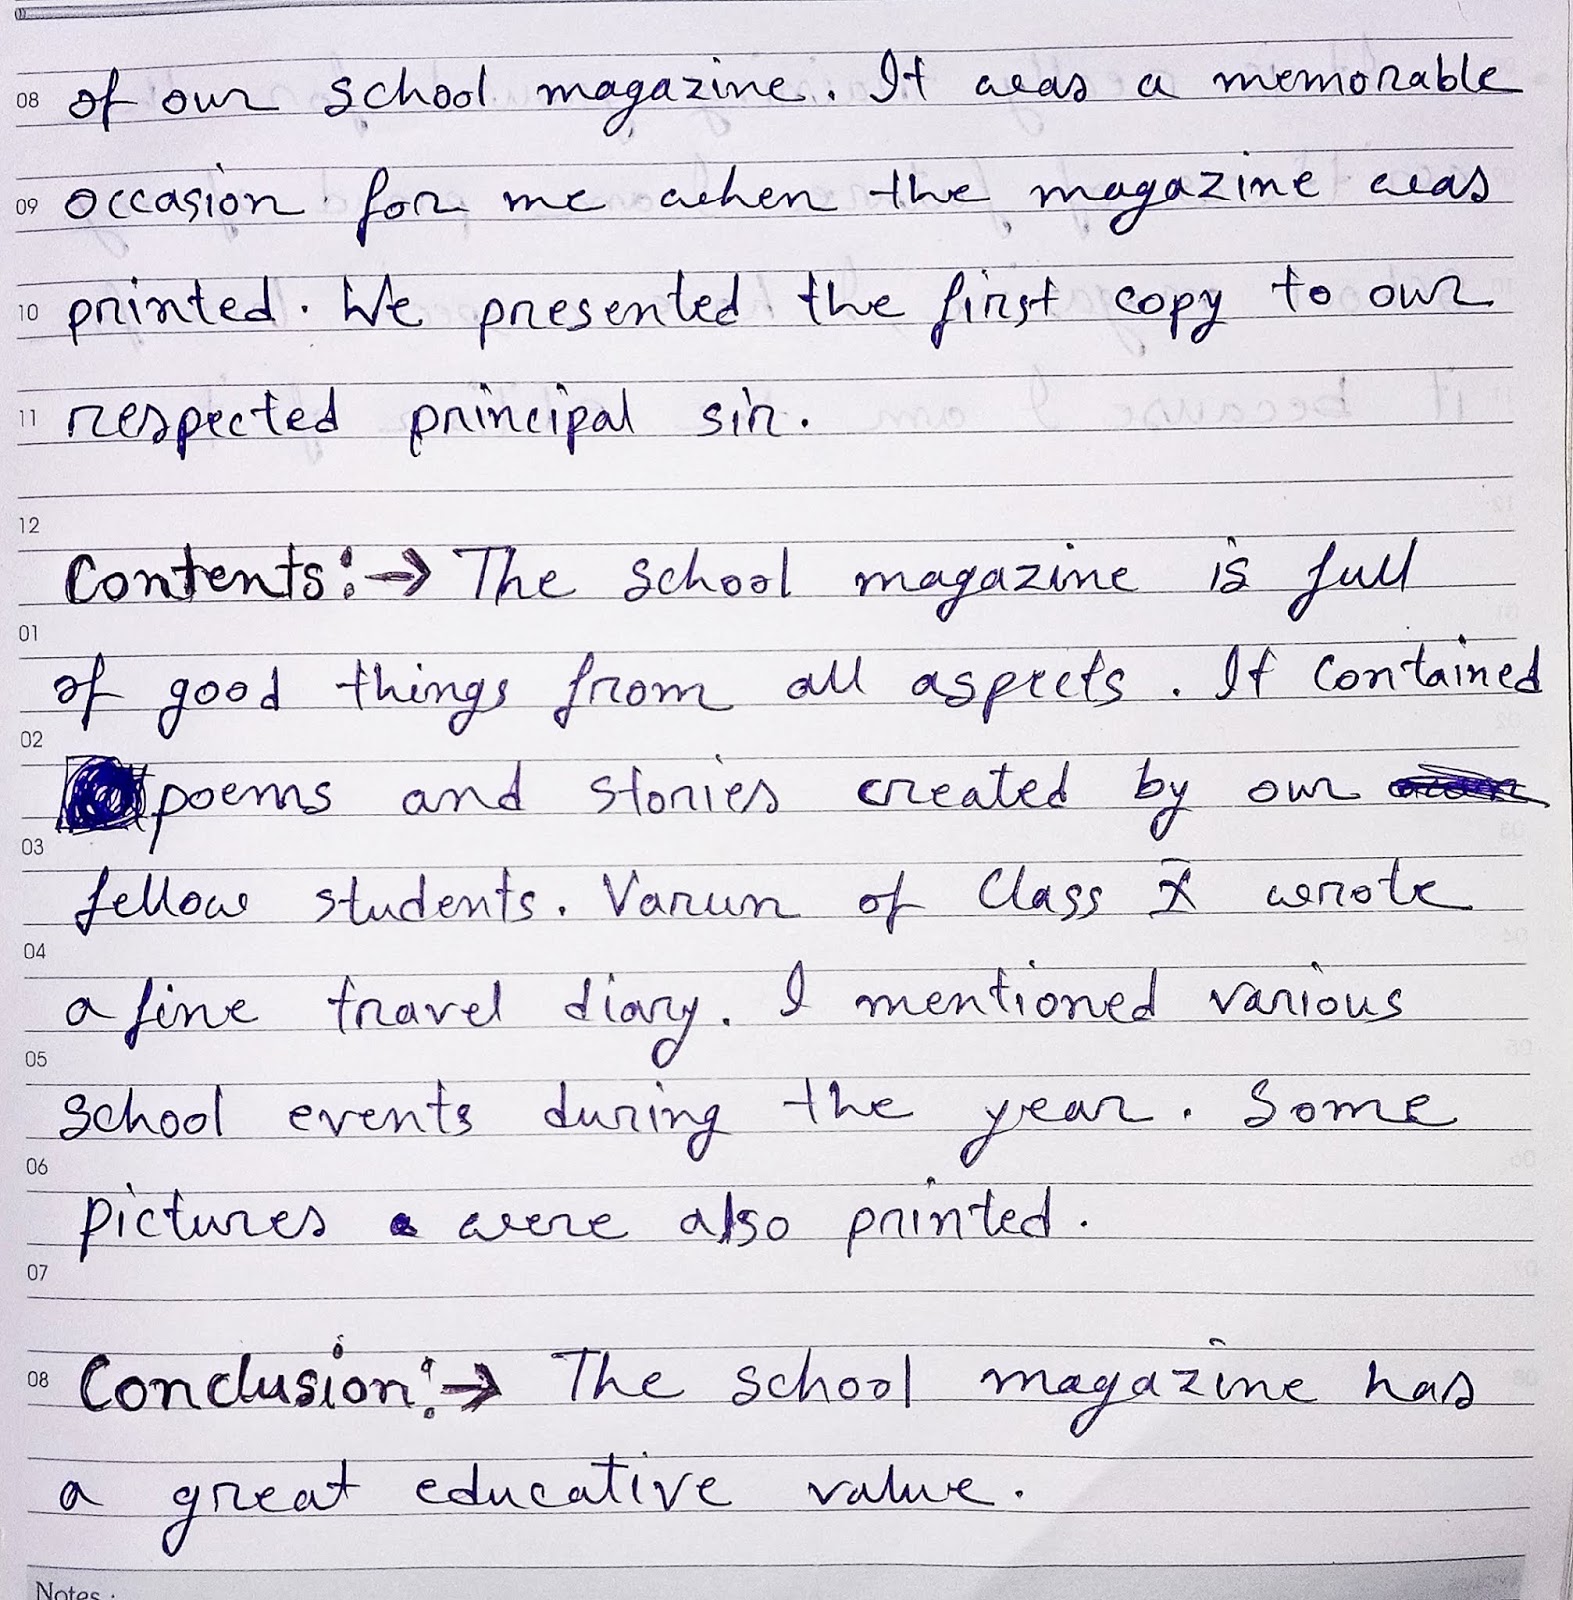 08 of our school magazine. It was a memorable
09 occasion for me when the magazine was
10 printed. We presented the first copy to our
11 respected principal sir.
12
Contents:→ The school magazine is full
01
of good things from all aspects. It contained
02
poems and stories created by our
03
fellow students. Varun of Class X wrote
04
a fine travel diary. I mentioned various
05
school events during the year. Some
06
pictures were also printed.
07
08 Conclusion:→ The school magazine has
a great educative value.
Notes :